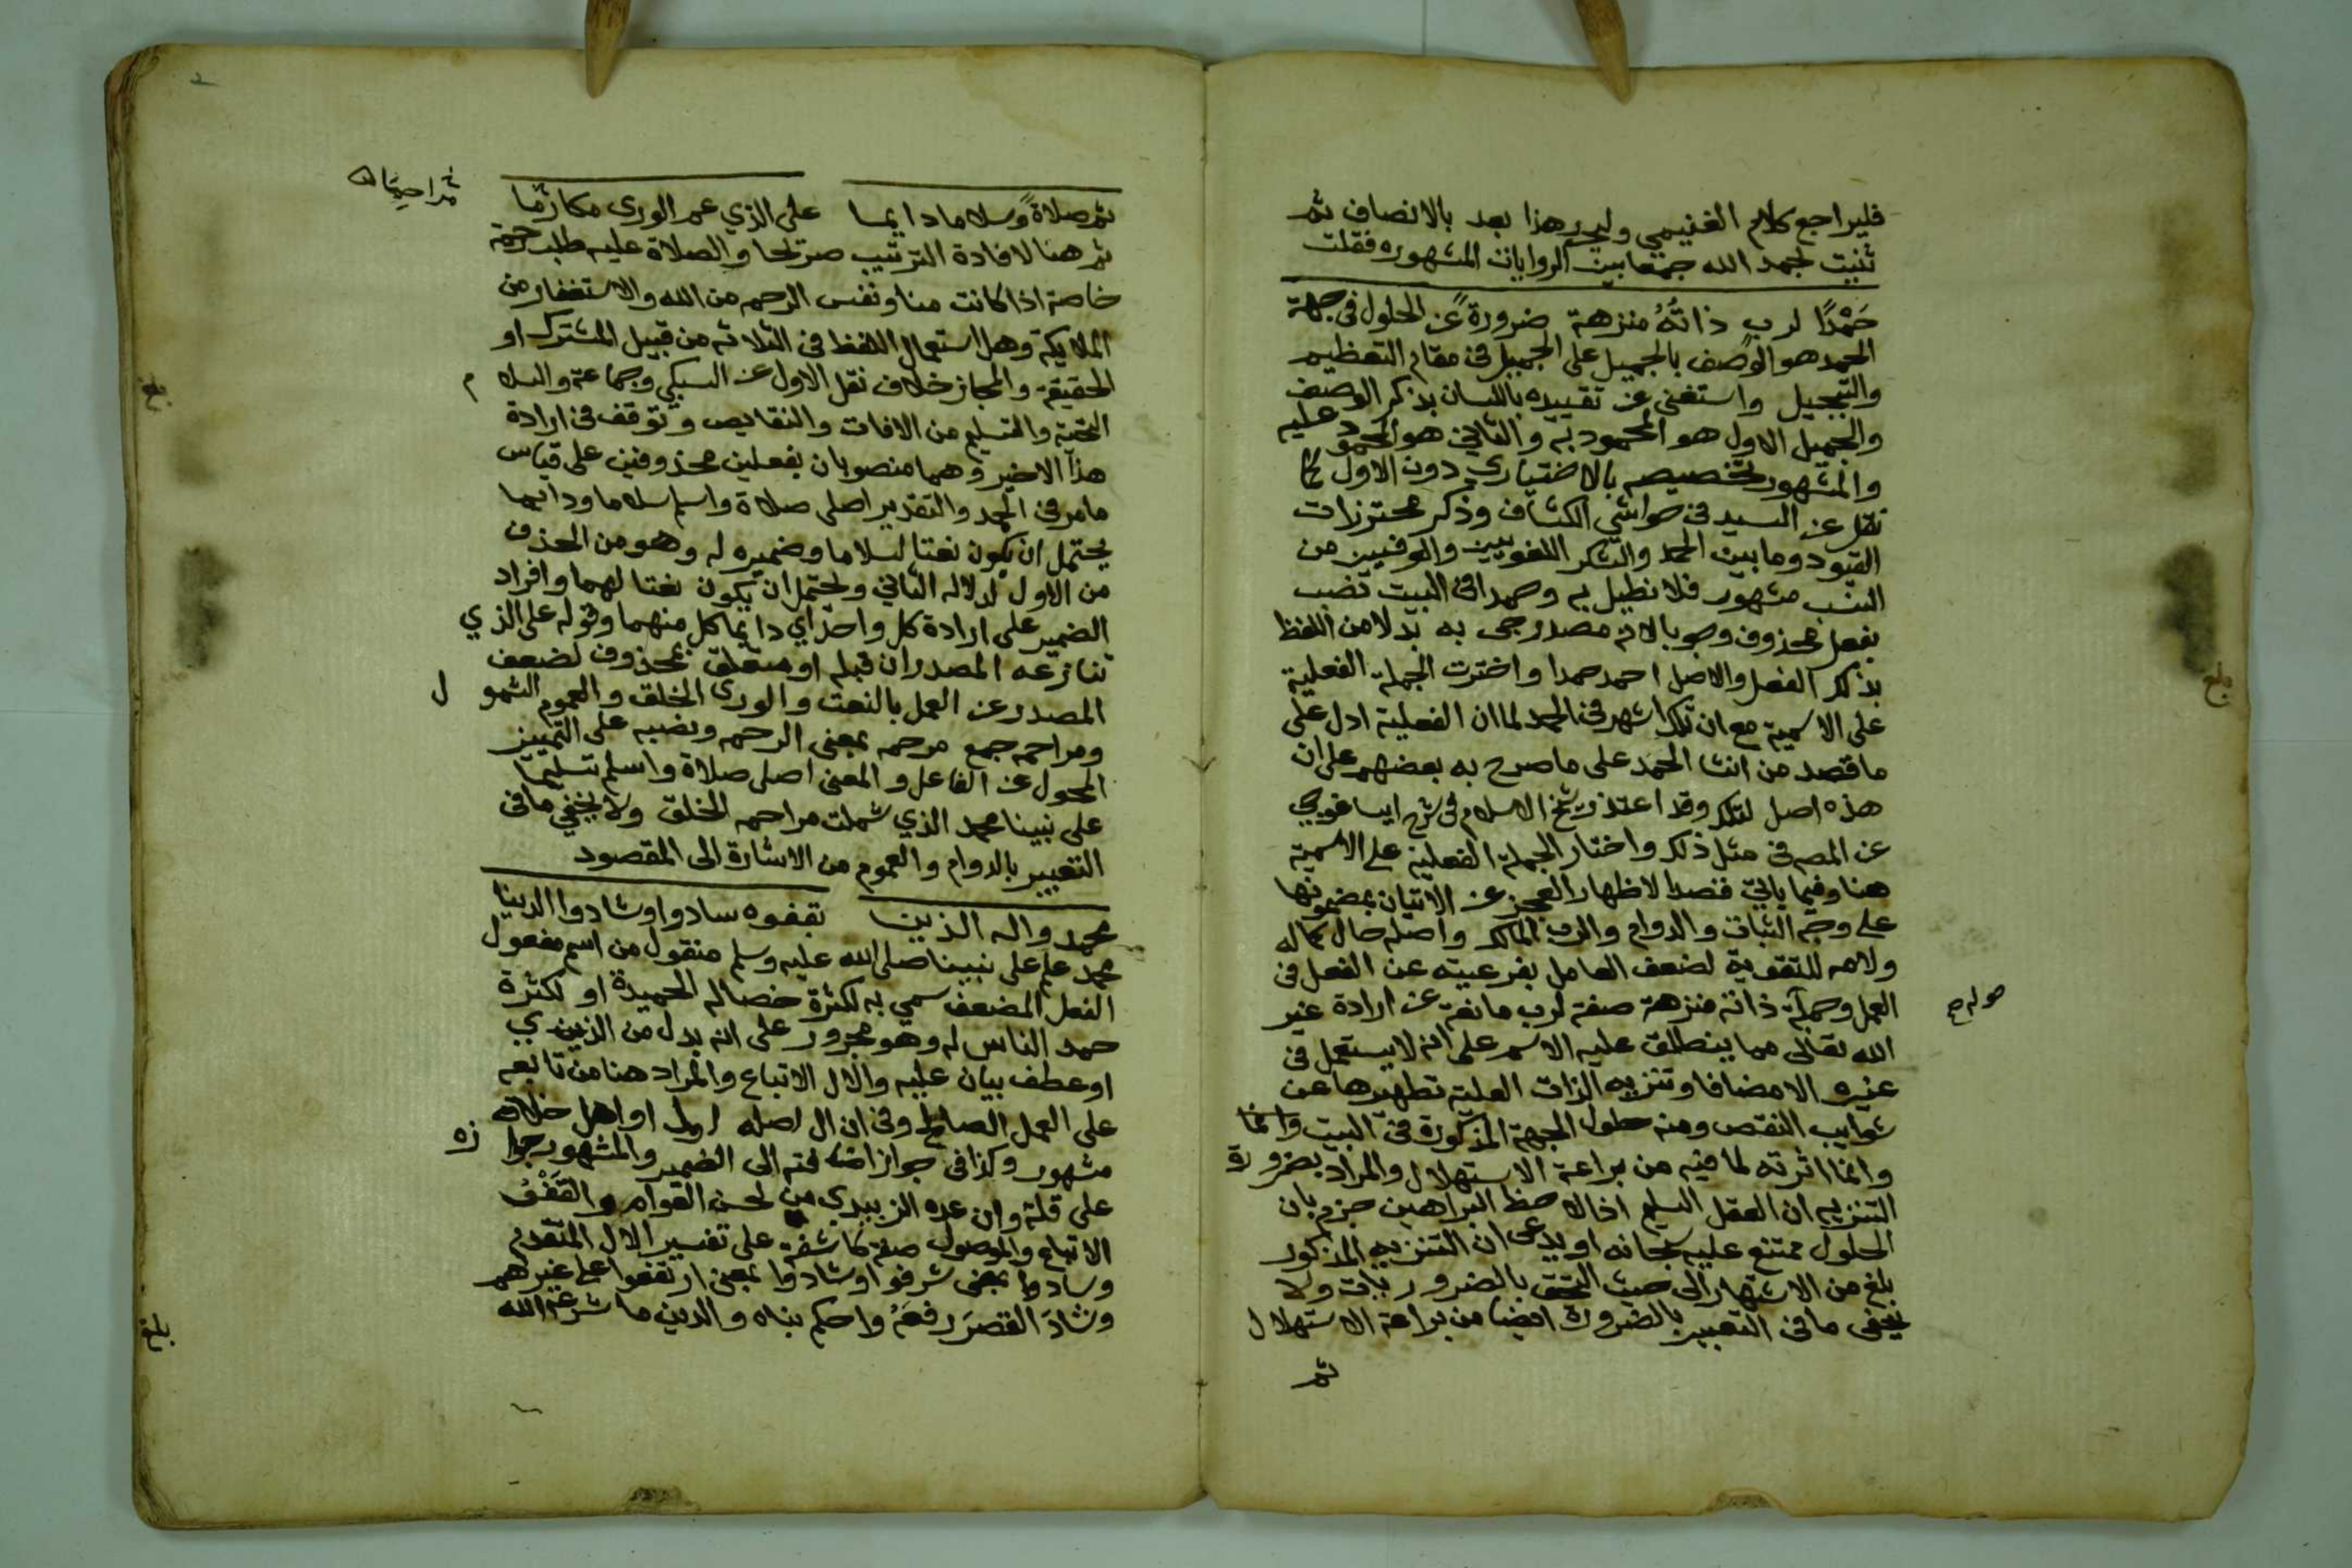 فليراجع كلام الغنيمي وليحرر هذا بعد بالانصاف ثم
ثنيت بحمد الله جمعا بين الروايات المشهوره فقلت
حَمْدًا لرب ذاتُهُ منزهة ضرورةً عن الحلول في جهة
الحمد هو الوصف بالجميل على الجميل في مقام التعظيم
والتبجيل واستغنى عن تقييده باللسان بذكر الوصف
والجميل الاول هو المحمود به والثاني هو المحمود عليه
والمشهور تخصيصه بالاختياري دون الاول كما
نقل عن السيد في حواشي الكشاف وذكر محترزات
القيود وما بين الحمد والشكر اللغويين والعرفيين من
النسب مشهور فلا نطيل به وحمدا في البيت نصب
بفعل محذوف وجوبا لانه مصدر جى به بدلا من اللفظ
بذكر الفعل والاصل احمد حمدا واخترت الجملة الفعلية
على الاسمية مع ان تلك اشهر في الحمد لما ان الفعلية ادل على
ما قصد من انشا الحمد على ما صرح به بعضهم على ان
هذه اصل لتلك وقد اعتذر شيخ الاسلام في شرح ايساغوجي
عن المصـ في مثل ذلك واختار الجملة الفعلية على الاسمية
هنا وفيما ياتي قصدا لاظهار العجز عن الاتيان بمضمونها
على وجه الثبات والدوام والرب المالك واصله حال كماله
ولامه للتقوية لضعف العامل بفرعيته عن الفعل في
العمل وجملة ذاته منزهة صفة لرب مانعة عن ارادة غير
الله تعالى مما ينطلق عليه الاسم على انه لا يستعمل في
غيره الا مضافا وتنزيه الذات العلية تطهيرها عن
شوايب النقص ومنه حلول الجهة المذكورة في البيت وانما
وانما اثرته لما فيه من براعة الاستهلال والمراد بضرورة
التنزيه ان العقل السليم اذا لاحظ البراهين جزم بان
الحلول ممتنع عليه سبحانه او يدعى ان التنزيه المذكور
بلغ من الاشتهار الى حيث التحق بالضروريات ولا
يخفى ما في التعبير بالضرورة ايضا من براعة الاستهلال
ثم
بلغ
ثم صلاةً وسلاما دايما على الذي عم الورى مكارما
مراحما
ثم هنا لافادة الترتيب صريحا والصلاة عليه طلب رحمة
خاصة اذا كانت منا ونفس الرحمه من الله والاستغفار من
الملايكة وهل استعمال اللفظ في الثلاثه من قبيل المشترك او
الحقيقة والمجاز خلاف نقل الاول عن السبكي وجماعة والسلام
التحية والتسليم من الافات والنقايص وتوقف في ارادة
هذا الاخير وهما منصوبان بفعلين محذوفين على قياس
ما مر في الحمد والتقدير اصلي صلاة واسلم سلاما ودايما
يحتمل ان يكون نعتا لسلاما وضميره له وهو من الحذف
من الاول لدلاله الثاني ويحتمل ان يكون نعتا لهما وافراد
الضمير على ارادة كل واحد اي دايما كل منهما وقوله على الذي
تنازعه المصدران قبله او متعلق بمحذوف لضعف
المصدر عن العمل بالنعت والورى الخلق والعموم الشمول
ومراحم جمع مرحمه بمعنى الرحمه ونصبه على التمييز
المحول عن الفاعل والمعنى اصلي صلاة واسلم تسليما
على نبينا محمد الذي شملت مراحمه الخلق ولا يخفي ما في
التعبير بالدوام والعموم من الاشارة الى المقصود
محمد واله الذينا بقفوه سادوا وشادوا الدينا
محمد علم على نبينا صلى الله عليه وسلم منقول من اسم مفعول
الفعل المضعف سمي به لكثرة خصاله الحميدة او لكثرة
حمد الناس له وهو مجرور على انه بدل من الذي
او عطف بيان عليه والال الاتباع والمراد هنا من تابعه
على العمل الصالح وفي ان ال اصله اول او اهل خلاف
مشهور وكذا في جواز اضافته الى الضمير والمشهور جوازه
على قلة وان عده الزبيدي من لحن العوام والقَفْوُ
الاتباع والموصول صفة كاشفة على تفسير الال المتقدم
وسادوا بمعنى شرفوا وشادوا بمعنى ارتفعوا على غيرهم
وشادَ القصرَ رفعَهُ واحكم بناه والدين ما شرعه الله
بلغ
بلغ